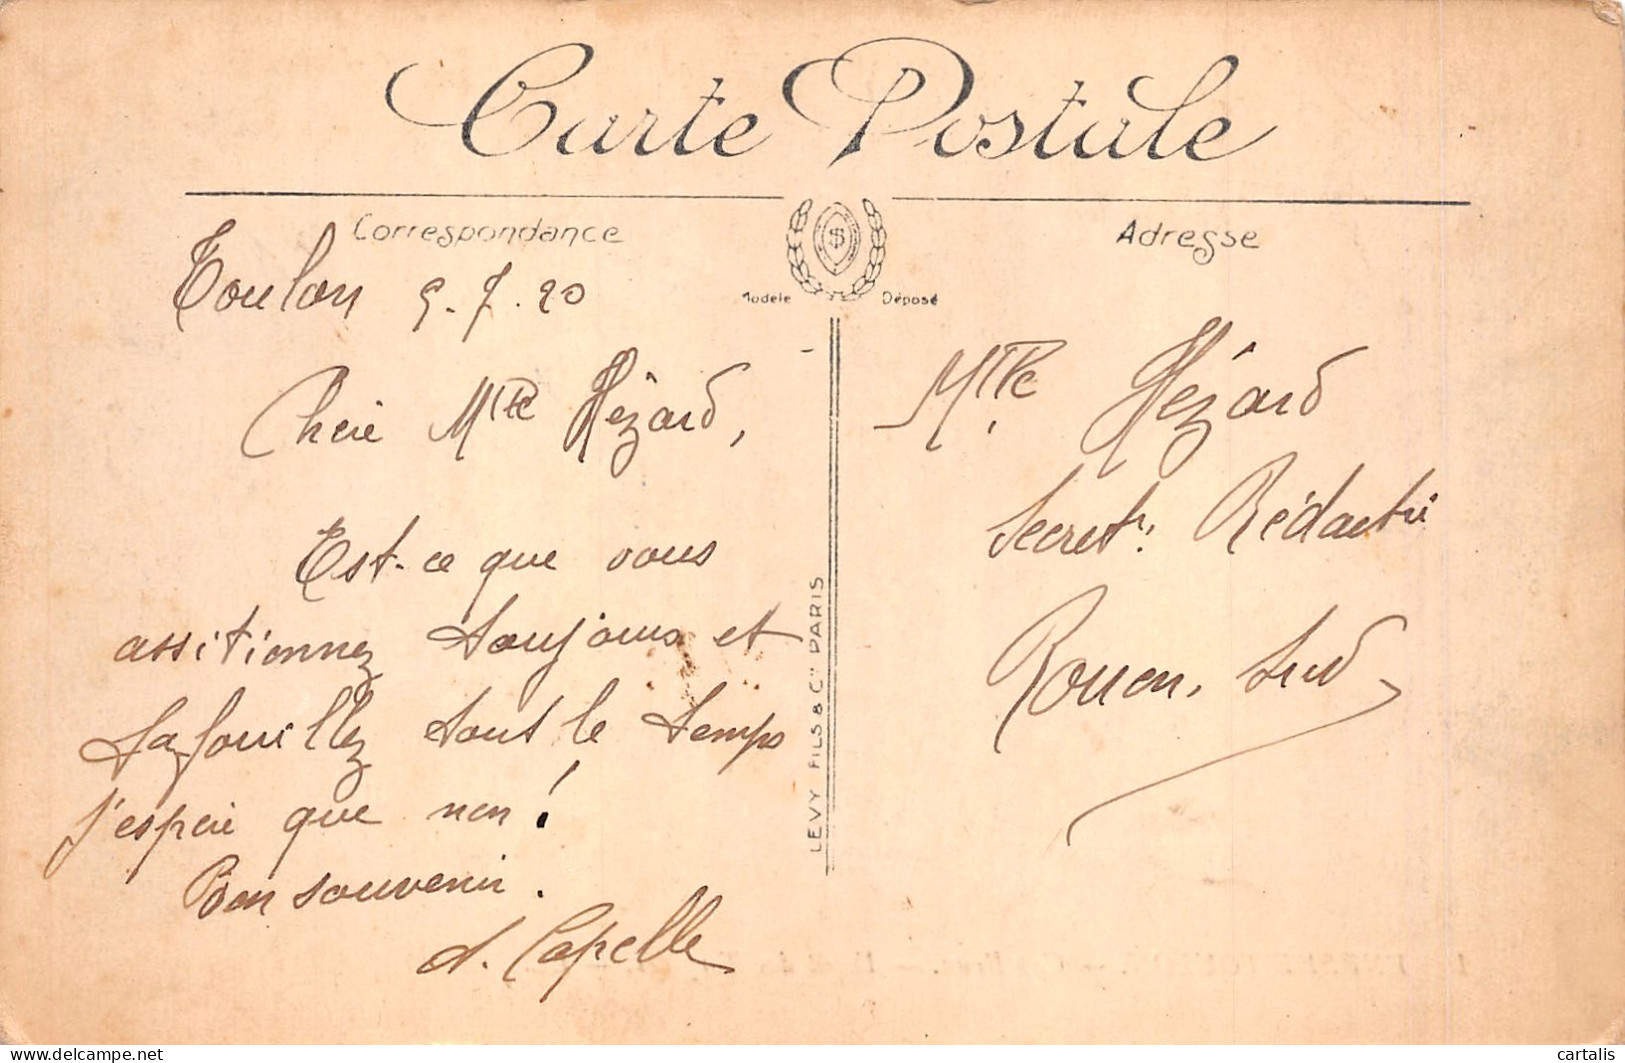 Carte Postale
Correspondance
Adresse
Modèle Déposé
Toulon 9.7.20
Chère Mlle Hézard,
Est-ce que vous
assitionnez toujours et
tafouillez tout le temps
j'espère que non!
Bon souvenir.
A. Capelle
Mlle Hézard
Secret. Rédactri
Rouen, Sud
LEVY FILS & Cie PARIS
delcampe.net
cartalis